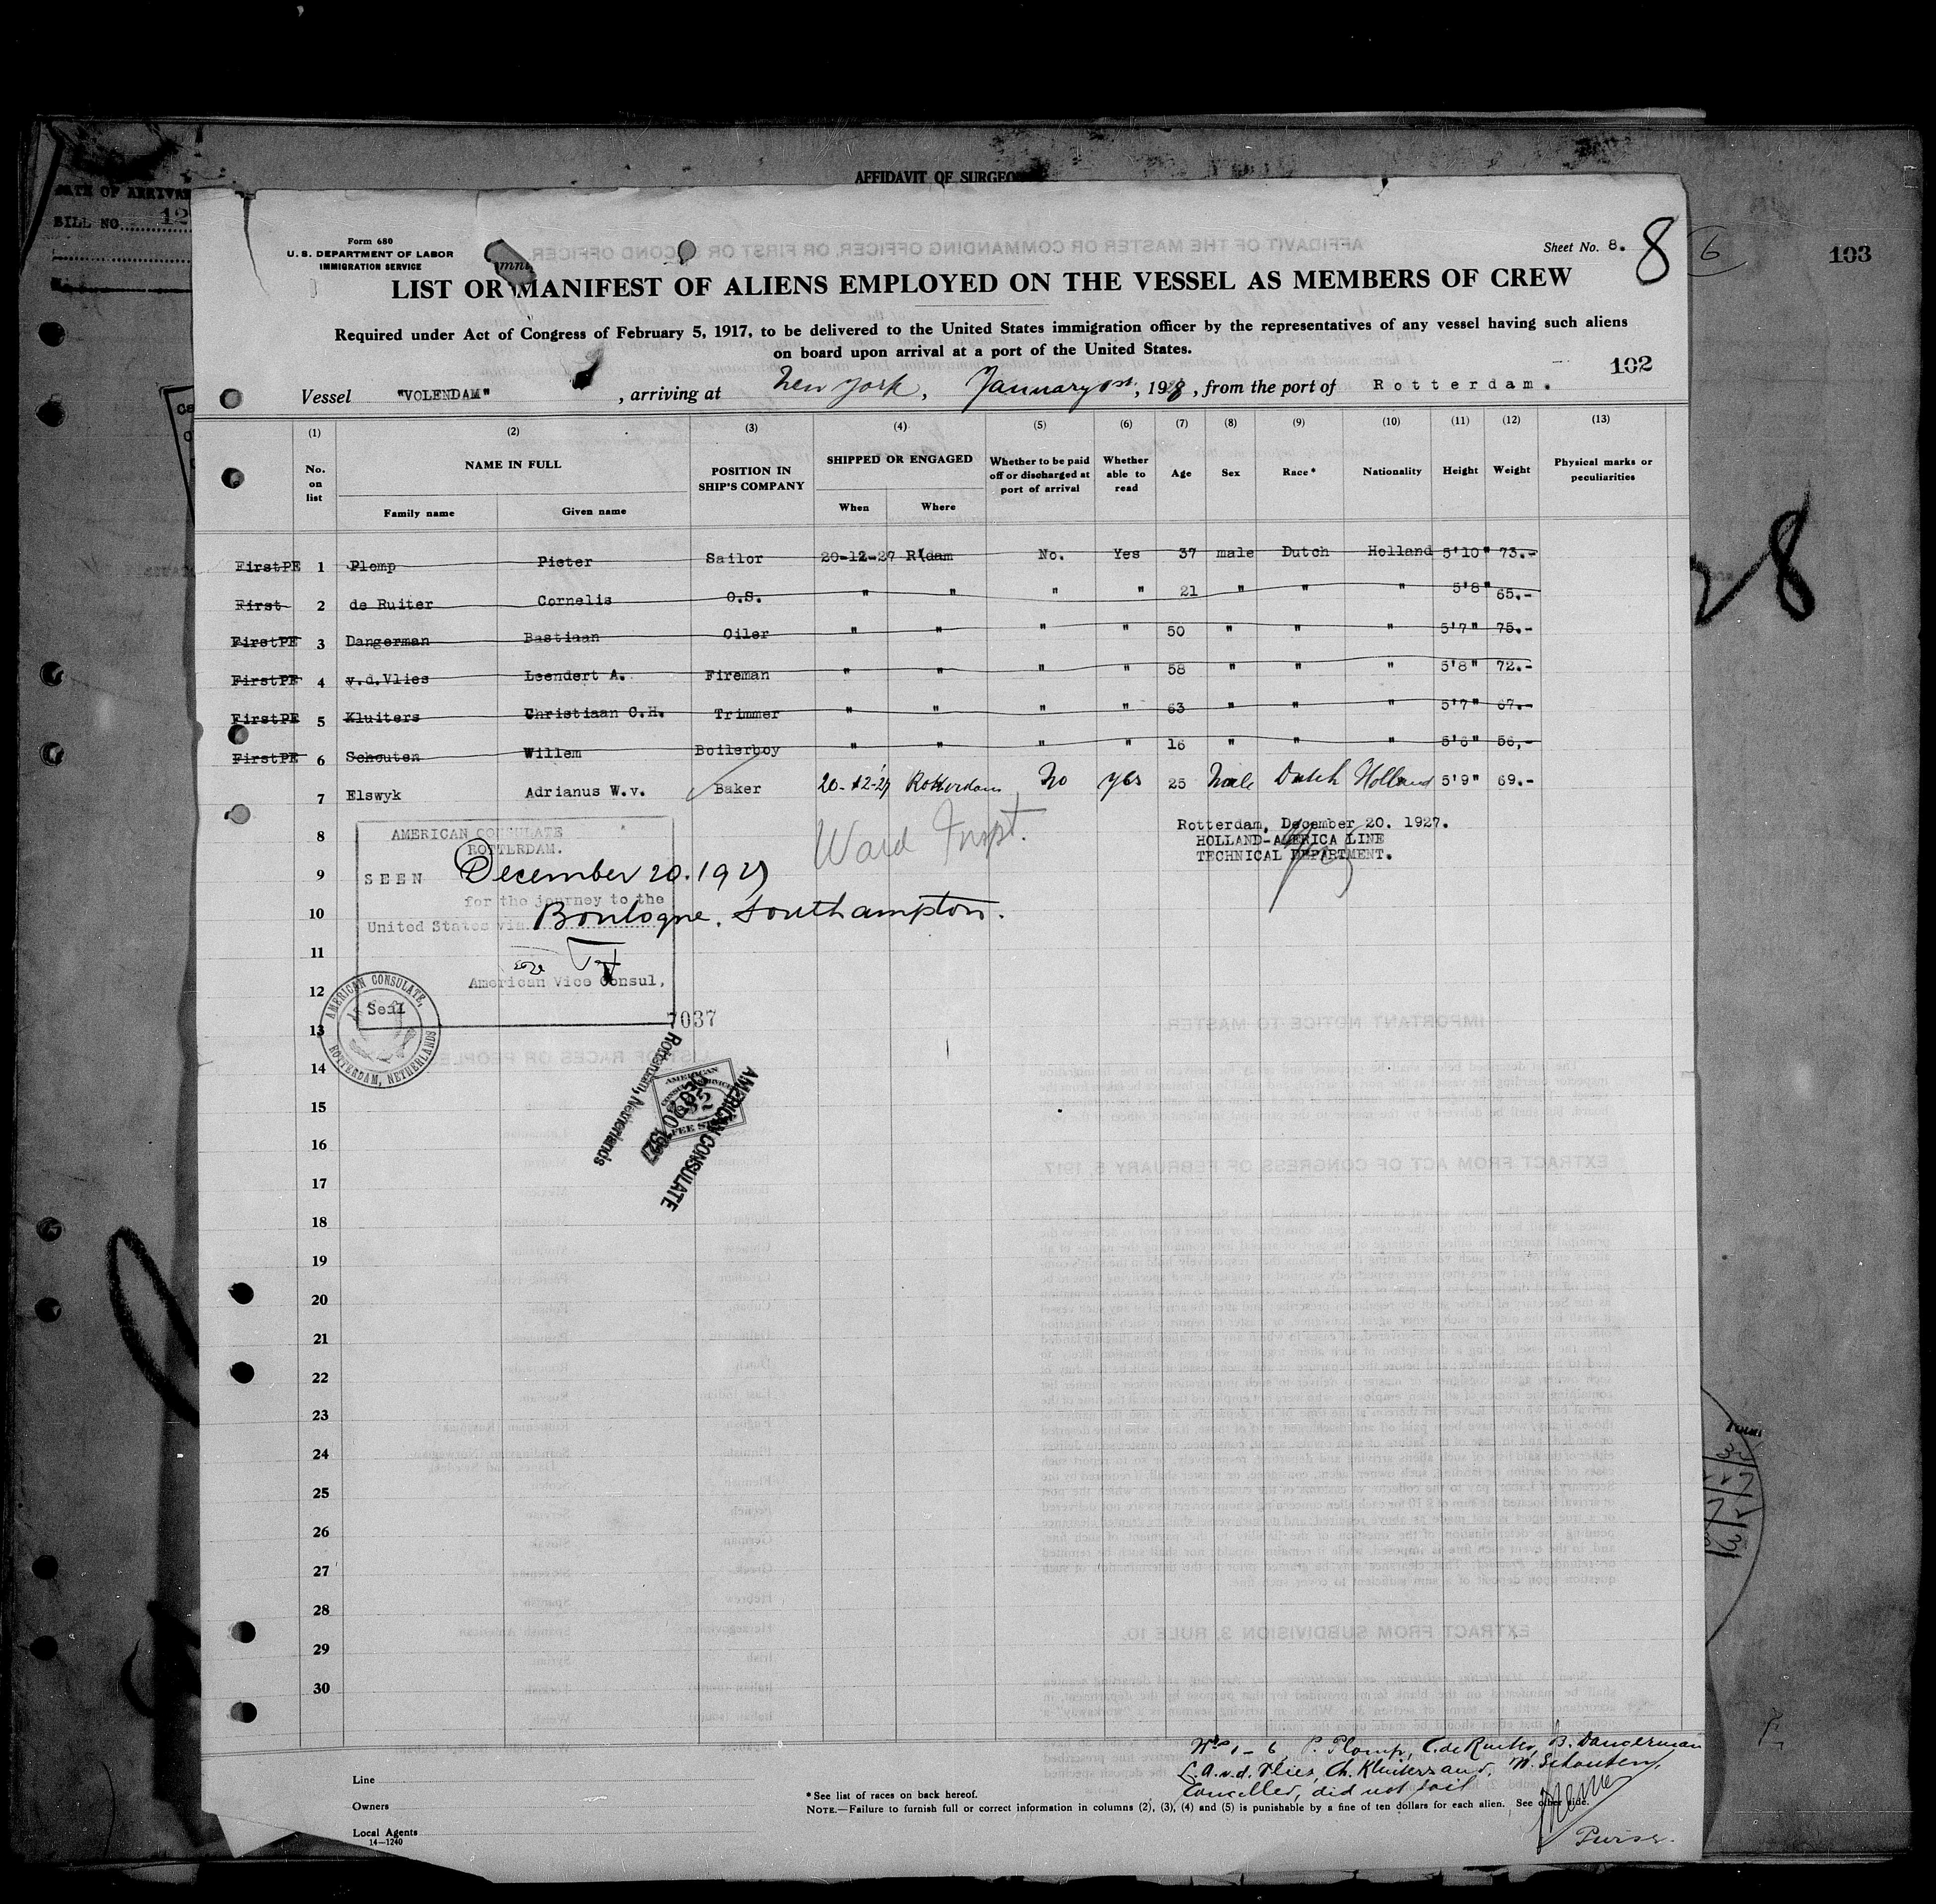 AFFIDAVIT OF SURGEON
DATE OF ARRIVAL
BILL NO. 12
103
Form 680
U. S. DEPARTMENT OF LABOR
IMMIGRATION SERVICE
Sheet No. 8.
8
6
LIST OR MANIFEST OF ALIENS EMPLOYED ON THE VESSEL AS MEMBERS OF CREW
Required under Act of Congress of February 5, 1917, to be delivered to the United States immigration officer by the representatives of any vessel having such aliens
on board upon arrival at a port of the United States.
102
Vessel "VOLENDAM", arriving at New York, January 1st, 1928, from the port of Rotterdam.
(1) (2) (3) (4) (5) (6) (7) (8) (9) (10) (11) (12) (13)
No. on list NAME IN FULL POSITION IN SHIP'S COMPANY SHIPPED OR ENGAGED Whether to be paid off or discharged at port of arrival Whether able to read Age Sex Race* Nationality Height Weight Physical marks or peculiarities
Family name Given name When Where
FirstPE 1 Plomp Pieter Sailor 20-12-27 R'dam No. Yes 37 male Dutch Holland 5'10" 73.-
First 2 de Ruiter Cornelis O.S. " " " " 21 " " " 5'8" 65.-
FirstPE 3 Dangerman Bastiaan Oiler " " " " 50 " " " 5'7" 75.-
FirstPE 4 v.d.Vlies Leendert A. Fireman " " " " 58 " " " 5'8" 72.-
FirstPE 5 Kluiters Christiaan C.H. Trimmer " " " " 63 " " " 5'7" 67.-
FirstPE 6 Schouten Willem Boilerboy " " " " 16 " " " 5'6" 56,-
7 Elswyk Adrianus W.v. Baker 20-12-27 Rotterdam No yes 25 Male Dutch Holland 5'9" 69.-
8
AMERICAN CONSULATE
ROTTERDAM.
Ward Inspt.
Rotterdam, December 20. 1927.
HOLLAND-AMERICA LINE
TECHNICAL DEPARTMENT.
9
SEEN December 20. 1927
for the journey to the
10
United States via Boulogne, Southampton.
11
American Vice Consul,
12
AMERICAN CONSULATE,
ROTTERDAM, NETHERLANDS
Seal
7037
13
14
Rotterdam, Netherlands
DEC 20 1927
AMERICAN CONSULATE
AMERICAN
FEE STAMP
15
16
17
18
19
20
21
22
23
24
25
26
27
28
29
30
Nos 1 - 6, P. Plomp, C. de Ruiter, B. Dangerman
L. A. v. d. Vlies, Ch. Kluiters and W. Schouten,
Cancelled, did not sail
Purser.
Line
Owners
Local Agents
14—1240
* See list of races on back hereof.
NOTE.—Failure to furnish full or correct information in columns (2), (3), (4) and (5) is punishable by a fine of ten dollars for each alien. See other side.